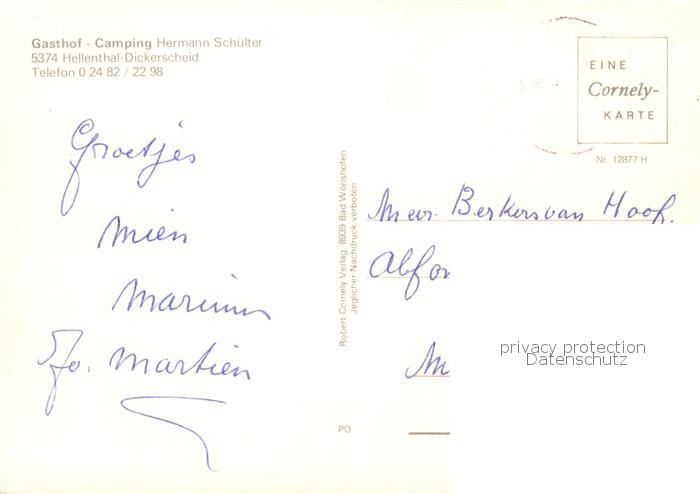 Gasthof - Camping Hermann Schülter
5374 Hellenthal-Dickerscheid
Telefon 0 24 82 / 22 98
Groetjes
Mien
Marinus
Jo. Martien
Robert Cornely Verlag, 8939 Bad Wörishofen
Jeglicher Nachdruck verboten
PO
EINE
Cornely-
KARTE
Nr. 12877 H
Mevr. Berkers van Hoof.
privacy protection
Datenschutz